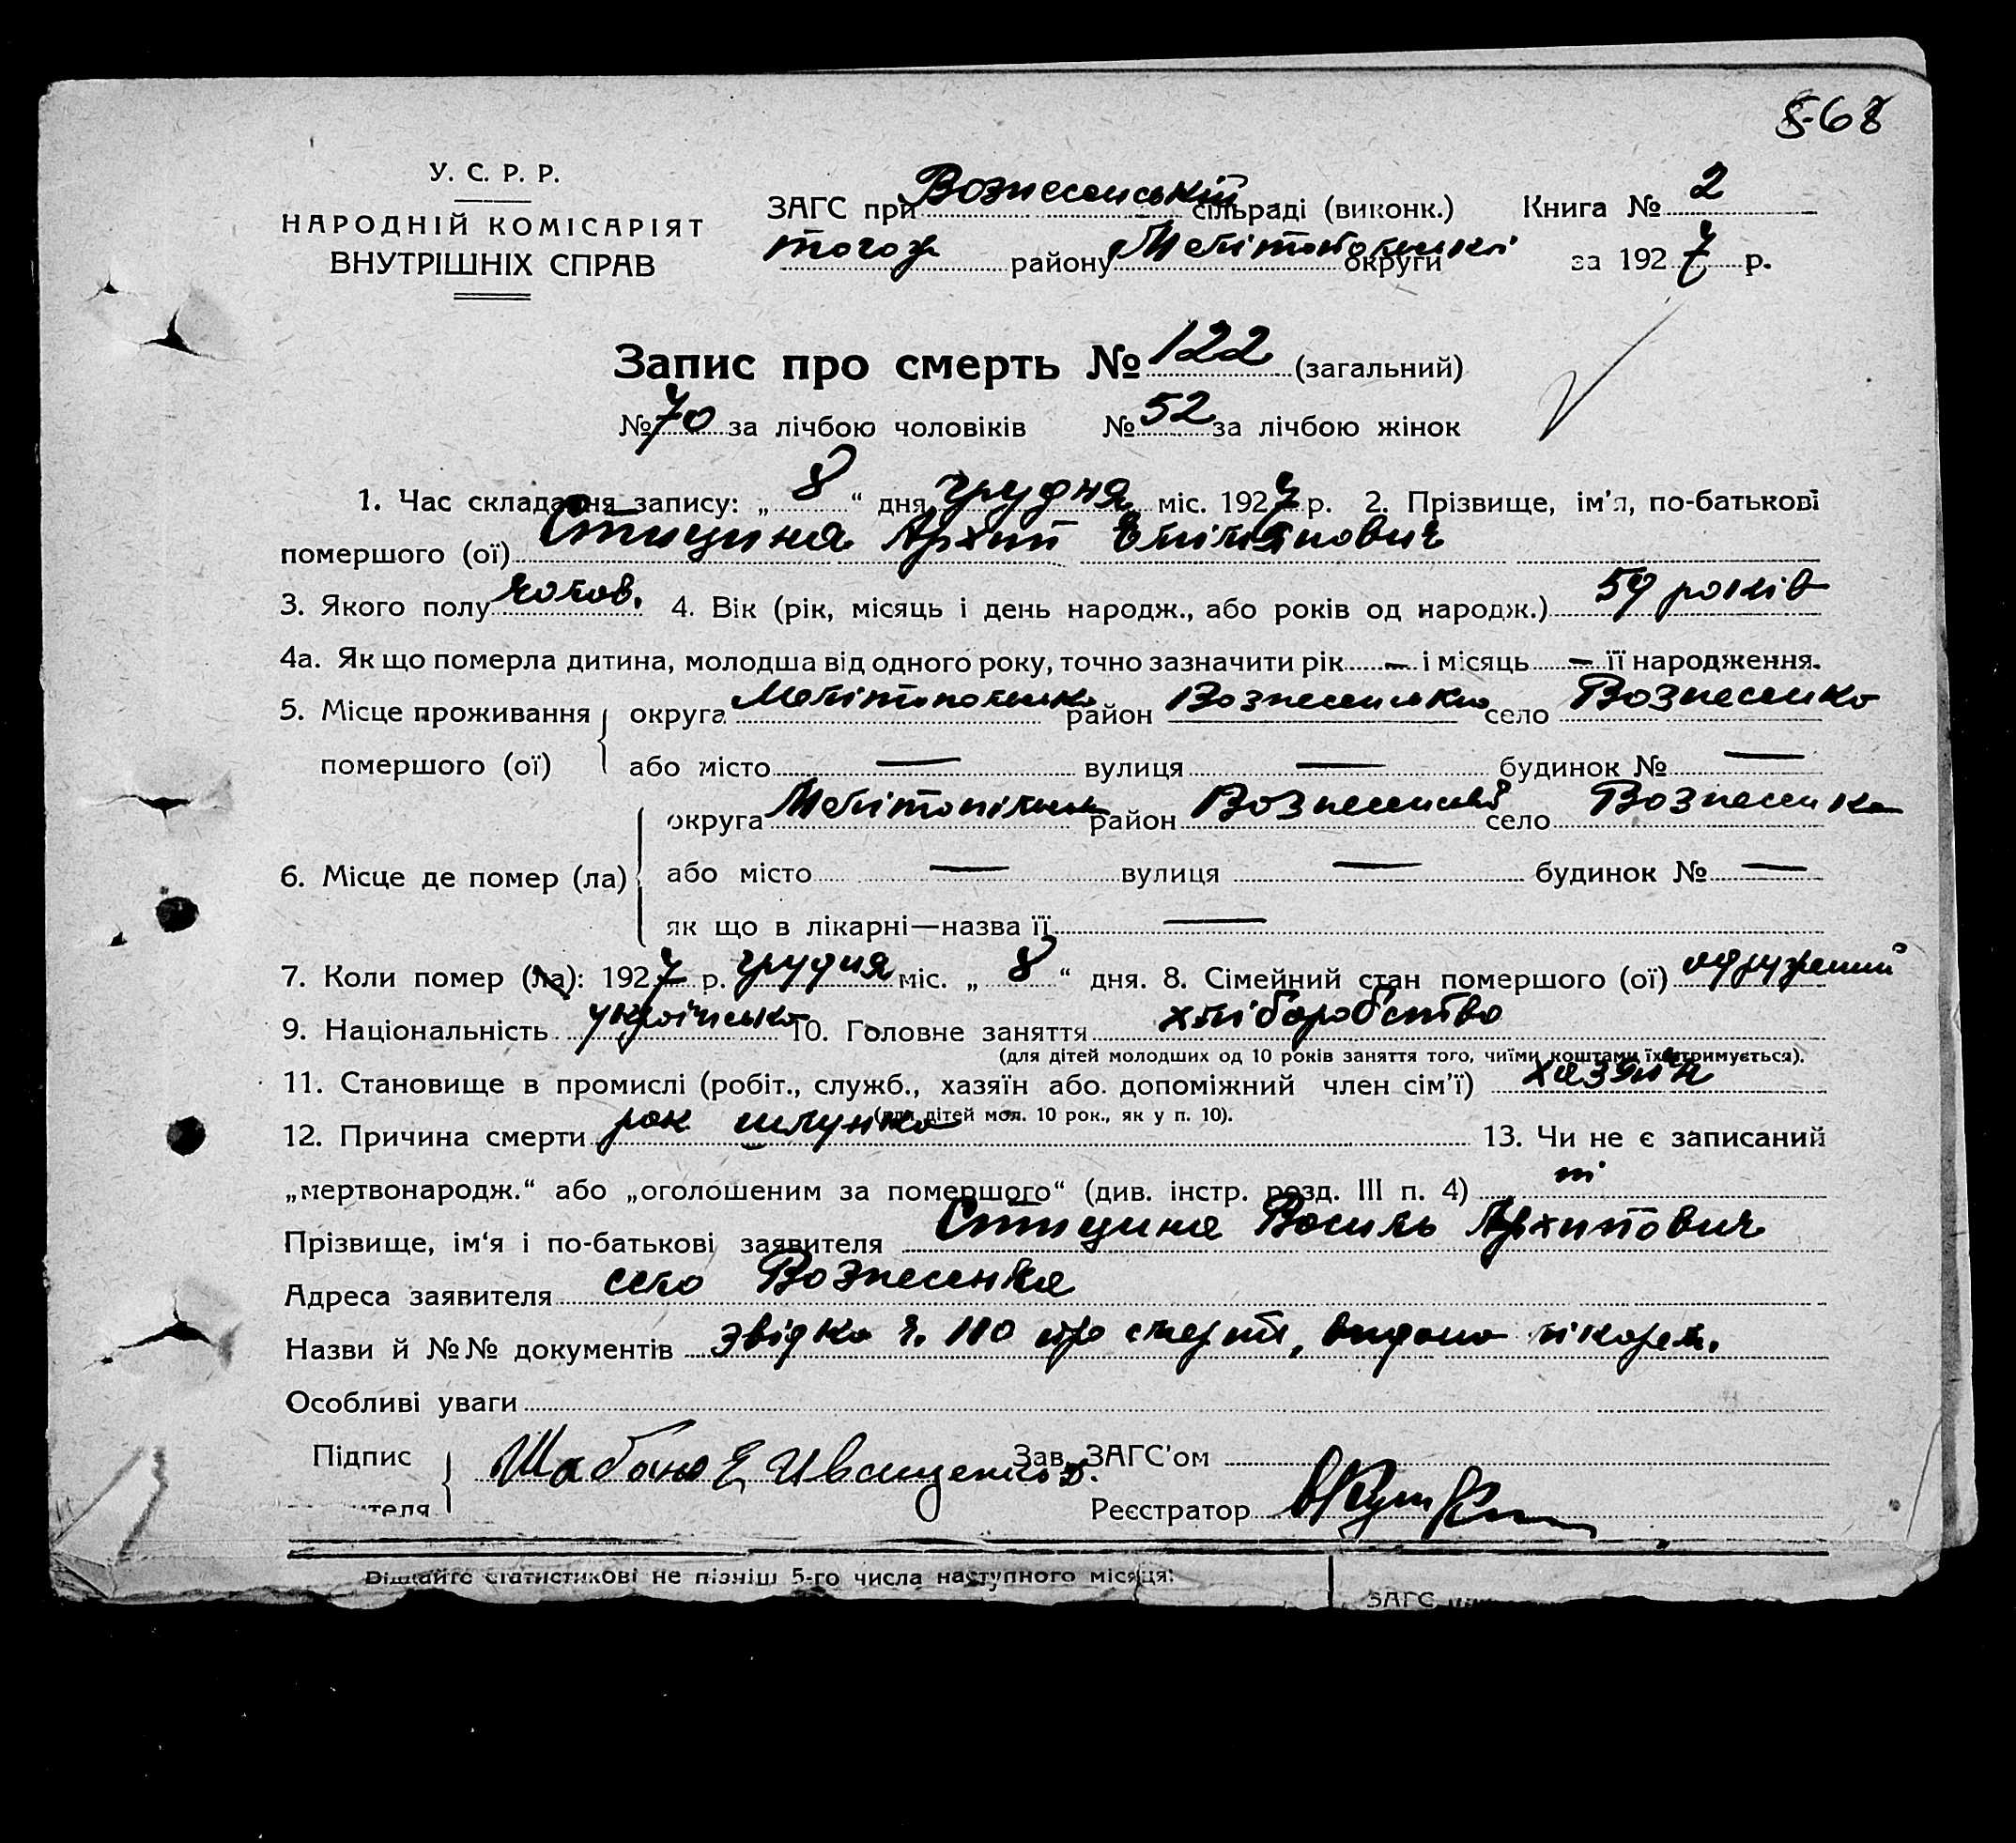 568
У. С. Р. Р.
НАРОДНІЙ КОМІСАРІЯТ
ВНУТРІШНІХ СПРАВ
ЗАГС при Вознесенській сільраді (виконк.) Книга № 2
того ж району Мелітопольської округи за 1927 р.
Запис про смерть № 122 (загальний)
№ 70 за лічбою чоловіків № 52 за лічбою жінок
1. Час складання запису: „ 8 “ дня грудня міс. 1927 р. 2. Прізвище, ім'я, по-батькові
помершого (ої) Стицина Архип Омілянович
3. Якого полу чолов. 4. Вік (рік, місяць і день народж., або років од народж.) 59 років
4а. Як що померла дитина, молодша від одного року, точно зазначити рік — і місяць — її народження.
5. Місце проживання округа Мелітопольська район Вознесенська село Вознесенка
помершого (ої) або місто — вулиця — будинок № —
округа Мелітопільська район Вознесенський село Вознесенка
6. Місце де помер (ла) або місто — вулиця — будинок № —
як що в лікарні—назва її —
7. Коли помер (ла): 1927 р. грудня міс. „ 8 “ дня. 8. Сімейний стан помершого (ої) одружений
9. Національність українська 10. Головне заняття хліборобство
(для дітей молодших од 10 років заняття того, чиїми коштами їх утримується).
11. Становище в промислі (робіт., служб., хазяїн або допоміжний член сім'ї) хазяїн
(для дітей мол. 10 рок., як у п. 10).
12. Причина смерти рак шлунка 13. Чи не є записаний
„мертвонародж.“ або „оголошеним за помершого“ (див. інстр. розд. III п. 4) ні
Прізвище, ім'я і по-батькові заявителя Стицина Василь Архипович
Адреса заявителя село Вознесенка
Назви й №№ документів звідка ч. 110 про смерть, видана лікарем.
Особливі уваги
Підпис Шабано Е, Иващенко Д. Зав. ЗАГС'ом
теля Реєстратор
статистикові не пізніш 5-го числа наступного місяця:
ЗАГС